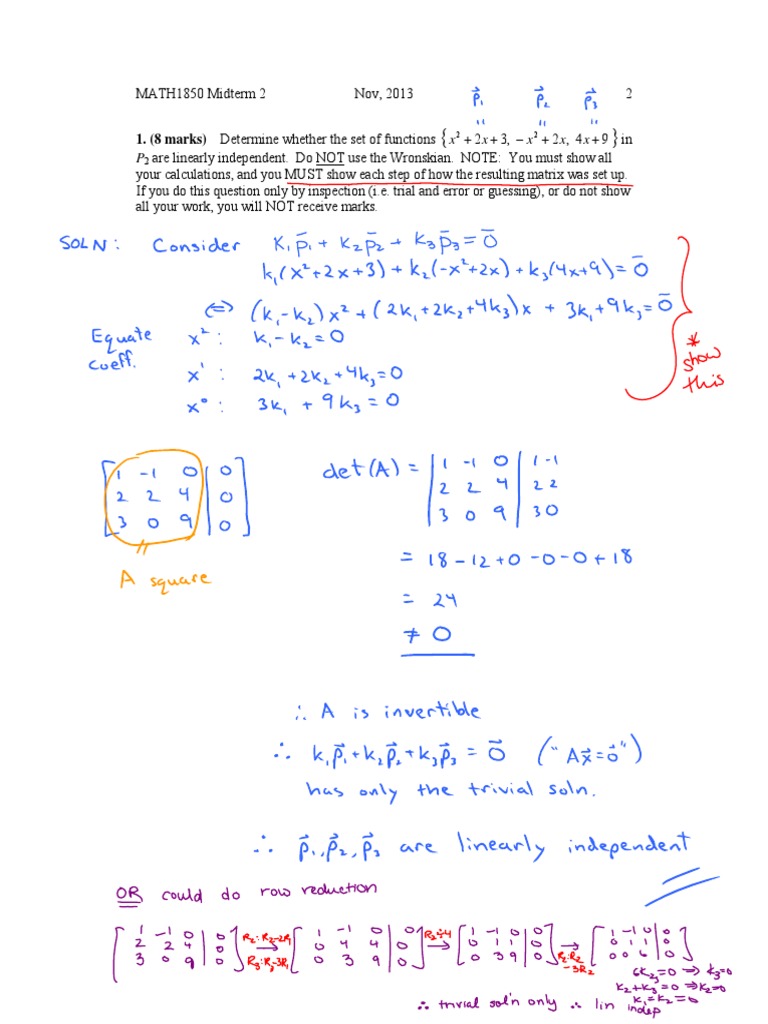 MATH1850 Midterm 2 Nov, 2013 p⃗₁ p⃗₂ p⃗₃ 2
" " "
1. (8 marks) Determine whether the set of functions {x² + 2x + 3, − x² + 2x, 4x + 9} in
P₂ are linearly independent. Do NOT use the Wronskian. NOTE: You must show all
your calculations, and you MUST show each step of how the resulting matrix was set up.
If you do this question only by inspection (i.e. trial and error or guessing), or do not show
all your work, you will NOT receive marks.
SOLN: Consider k₁p̄₁ + k₂p̄₂ + k₃p̄₃ = 0̄
k₁(x²+2x+3) + k₂(-x²+2x) + k₃(4x+9) = 0̄
⇔ (k₁-k₂)x² + (2k₁+2k₂+4k₃)x + 3k₁+9k₃ = 0̄
Equate
coeff.
x²: k₁-k₂ = 0
x¹: 2k₁+2k₂+4k₃=0
x⁰: 3k₁ + 9k₃ = 0
* show
this
[ 1 -1 0 | 0
2 2 4 | 0
3 0 9 | 0 ]
"
A square
det(A) = | 1 -1 0 | 1 -1
2 2 4 | 2 2
3 0 9 | 3 0
= 18-12+0-0-0+18
= 24
≠ 0
∴ A is invertible
∴ k₁p⃗₁+k₂p⃗₂+k₃p⃗₃ = 0⃗ ("Ax⃗=0⃗")
has only the trivial soln.
∴ p⃗₁, p⃗₂, p⃗₃ are linearly independent
OR could do row reduction
[ 1 -1 0 | 0
2 2 4 | 0
3 0 9 | 0 ]
R₂:R₂-2R₁
→
R₃:R₃-3R₁
[ 1 -1 0 | 0
0 4 4 | 0
0 3 9 | 0 ]
R₂÷4
→
[ 1 -1 0 | 0
0 1 1 | 0
0 3 9 | 0 ]
→
R₂:R₂
-3R₂
[ 1 -1 0 | 0
0 1 1 | 0
0 0 6 | 0 ]
6k₃=0 ⇒ k₃=0
k₂+k₃=0 ⇒ k₂=0
k₁=k₂=0
∴ trivial sol'n only ∴ lin indep